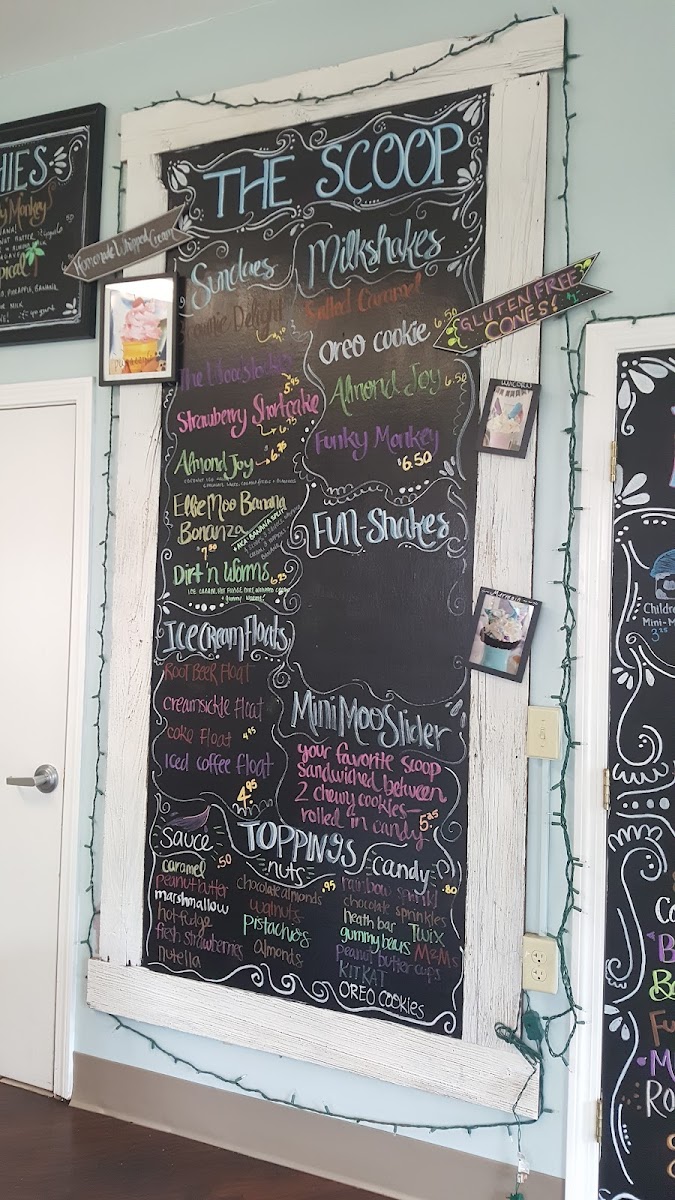 THE SCOOP
Homemade Whipped Cream
GLUTEN FREE
CONES!
Sundaes
Delight
Strawberry Shortcake
6.75
Almond Joy
6.75
Ellie Moo Banana
Bonanza
7.80
Dirt 'n Worms
6.25
Milkshakes
Salted Caramel
Oreo cookie 6.50
Almond Joy 6.50
Funky Monkey
6.50
Fun-Shakes
Ice Cream Floats
ROOT BEER Float
creamsickle Float
coke Float
Iced coffee float
4.95
Mini Moo Slider
your favorite scoop
sandwiched between
2 chewy cookies-
rolled in candy
TOPPINGS
sauce
.50
caramel
peanut butter
marshmallow
hot fudge
fresh strawberries
nutella
nuts
.95
chocolate almonds
walnuts
Pistachios
Almonds
candy
.80
rainbow sprinkl
chocolate sprinkles
heath bar Twix
gummy bears M&Ms
peanut butter cups
KIT KAT
OREO COOKIES
HIES
Monkey
Children
Mini-M
3.25